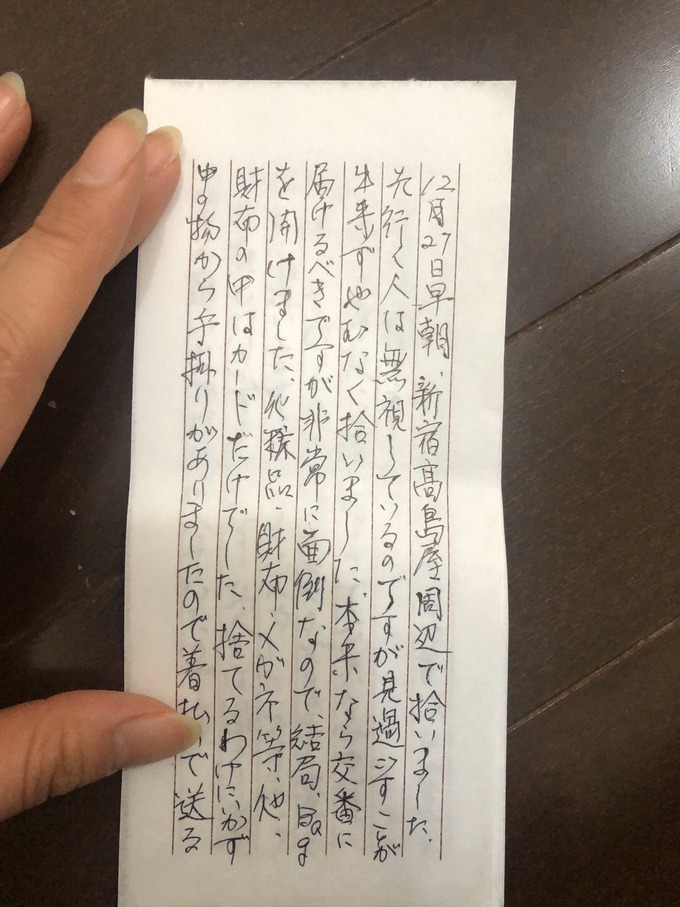 12月27日早朝、新宿髙島屋周辺で拾いました、
先行く人は無視しているのですが見過ごすことが
出来ずやむなく拾いました、本来なら交番に
届けるべきですが非常に面倒なので、結局、
を開けました、化粧品、財布、メガネ等、他、
財布の中はカードだけでした、捨てるわけにいかず
中の物から手掛りがありましたので着払いで送る